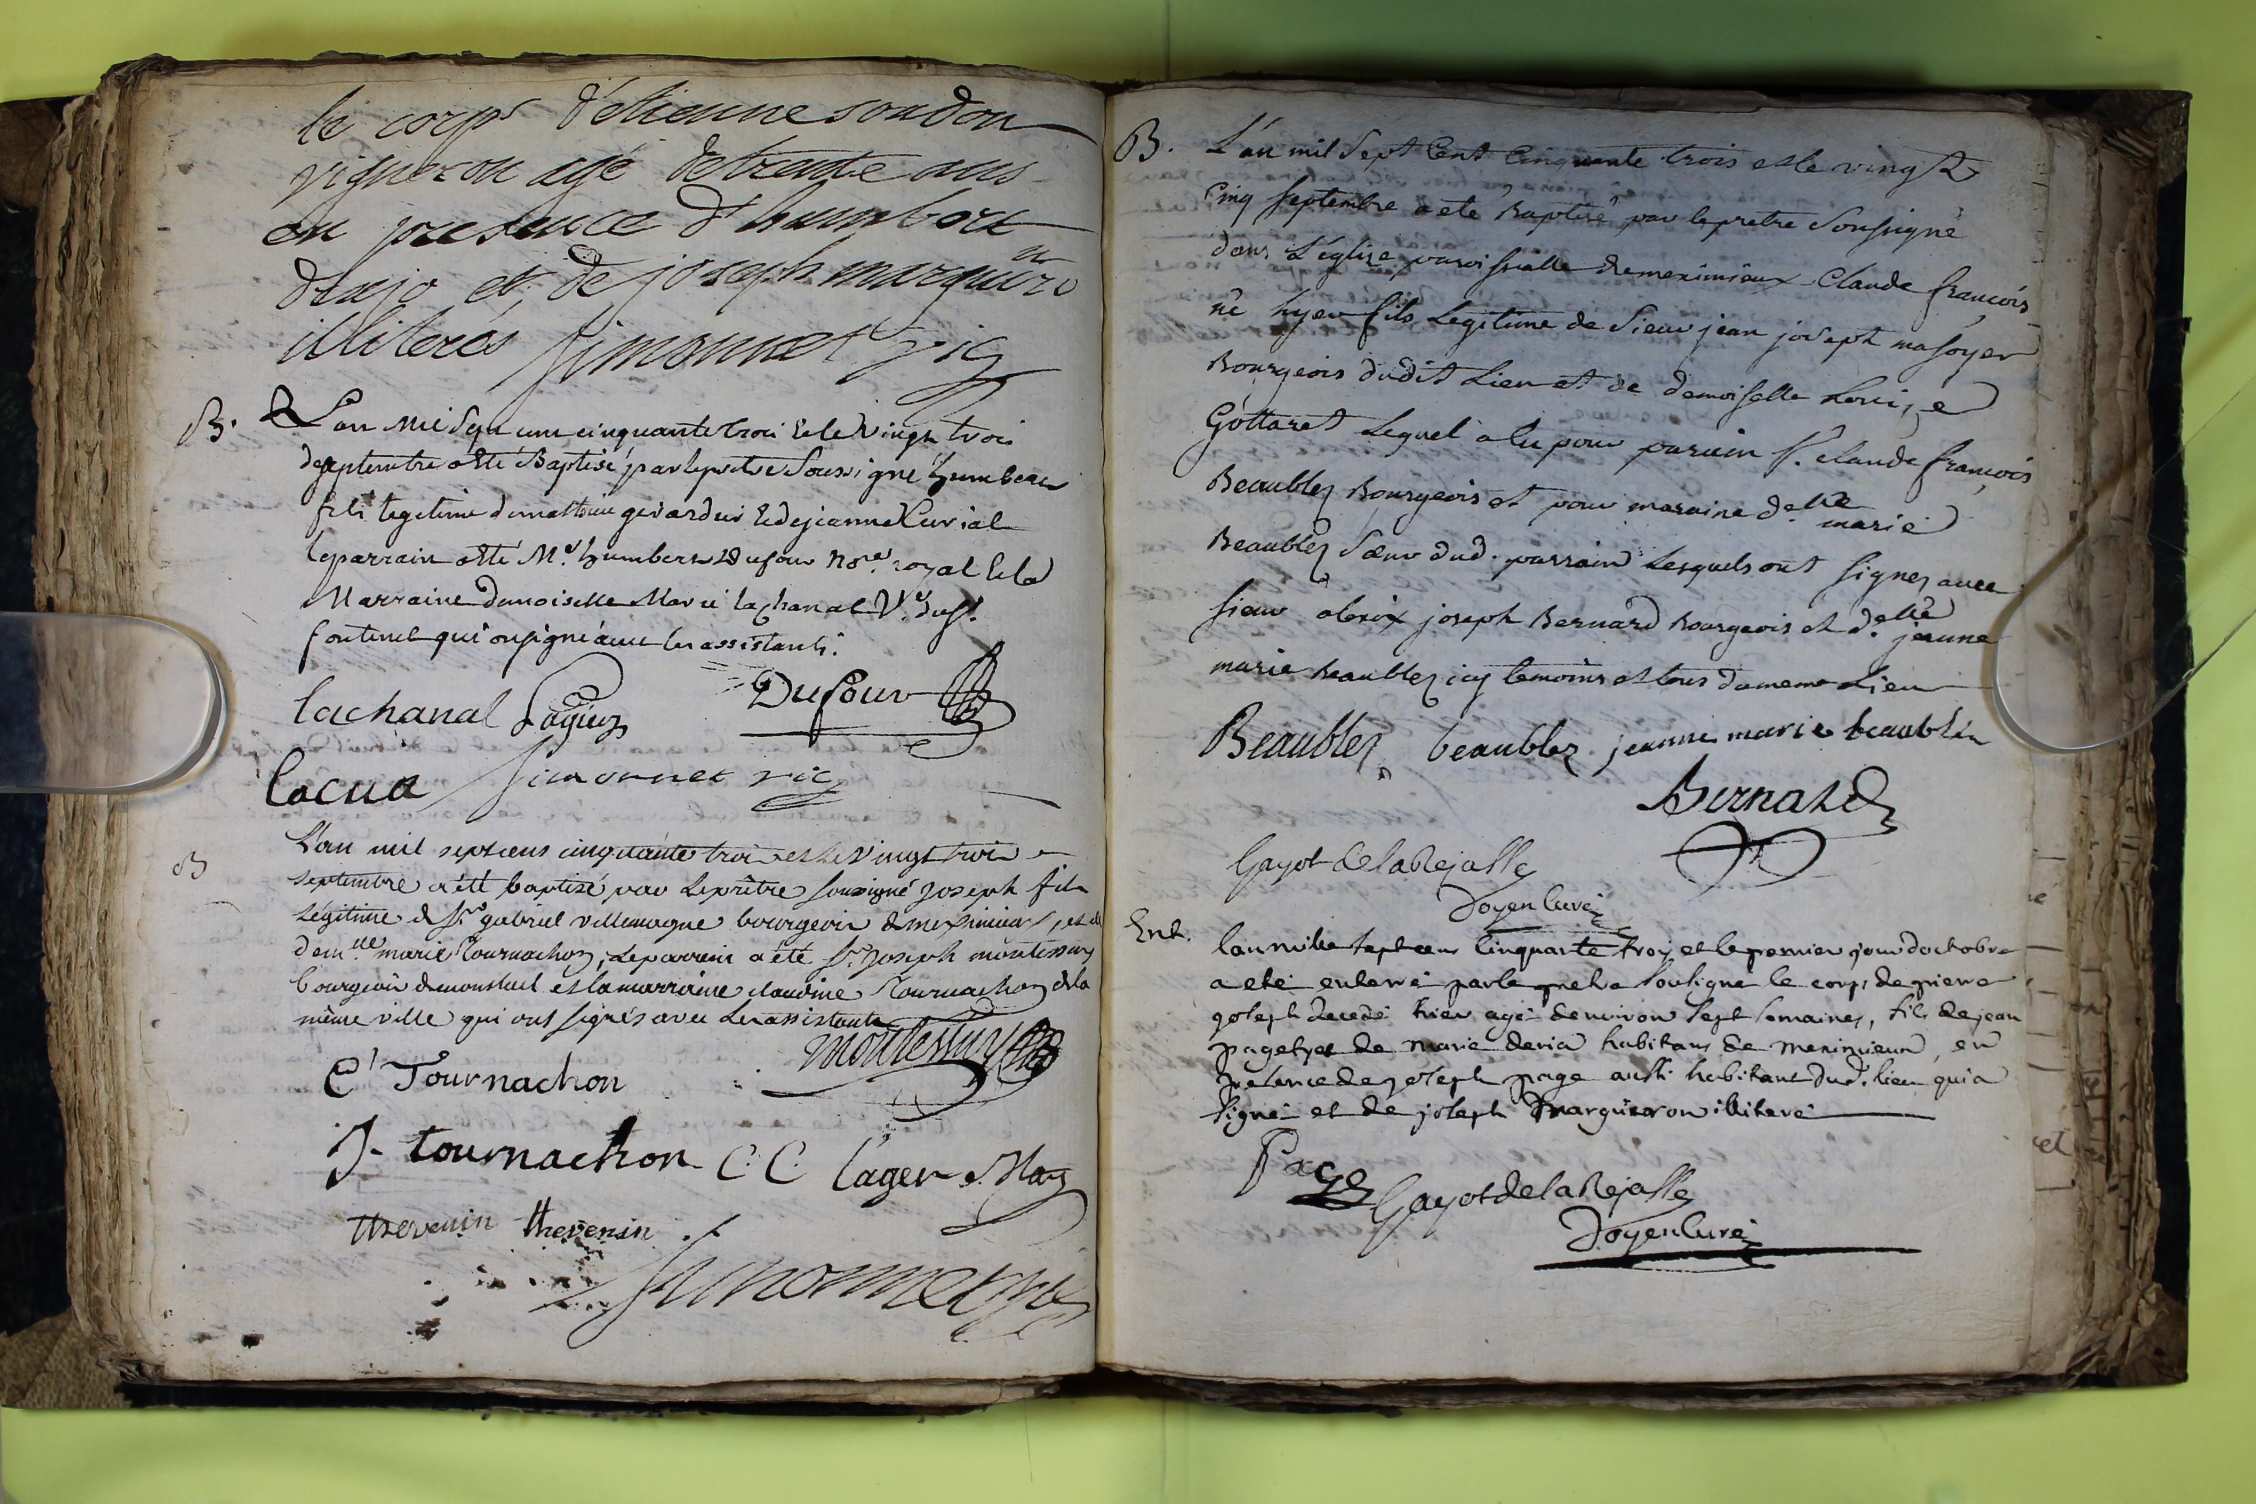 le corps d'étienne soudon
vigneron agé de trante ans
en presence d'humbert
drejo et de joseph marguiron
illiterés Simonnet vic
B.
L'an mil sept cent cinquante trois & le vingt trois
de septembre a esté Baptisé par le pretre Soussigné humbert
fils legitime de mathieu girardier & de jeanne Curial
le parrain a esté Me. humbert Dufour nore. royal & la
Marraine demoiselle Marie lachanal Ve. du Sr.
fontenel qui ont signé avec les assistants.
lachanal Dufour
lacua Simonnet vic
B
L'an mil sept cens cinquante trois et le vingt trois
septembre a été baptizé par le prêtre soussigné joseph fils
légitime de Sr. gabriel villemagne bourgeois de meximieux, et de
demlle. marie Tournachon, le parrain a été Sr. joseph montessuy
bourgeois de monsluel et la marraine claudine Tournachon de la
même ville qui ont signés avec les assistants
montessuy
C Tournachon
J. tournachon C. C. Lager
thevenin thevenin
Simonnet vic
B.
L'an mil Sept Cent Cinquante trois et le vingt
Cinq septembre a eté Baptisé par le pretre Soussigné
dans L'église paroissialle de meximieux Claude françois
né hyer fils Legitime de Sieur jean joseph masoyer
Bourgeois dudit Lieu et de demoiselle Louise
Gottaret Lequel a eu pour parain Sr. claude françois
Beaublez Bourgeois et pour maraine delle. marie
Beaublez Sœur dud. parrain Lesquels ont signez avec
sieur aloix joseph Bernard Bourgeois et delle. jeanne
marie Beaublez icy temoins et tous du meme Lieu
Beaublez beaublez jeanne marie beaublez
Bernard
Gayot de la Rejasse
Doyen Curé
Ent.
l'an mille sept cens Cinquante troy et le premier jour doctobre
a eté enterré par le pretre soussigné le corps de pierre
joseph decedé hier agé denviron sept semaines, fils de jean
page et de marie deria habitans de meximieux, en
presence de joseph page aussi habitant dud. lieu qui a
signé et de joseph marguiron illiteré
Page Gayot de la Rejasse
Doyen Curé